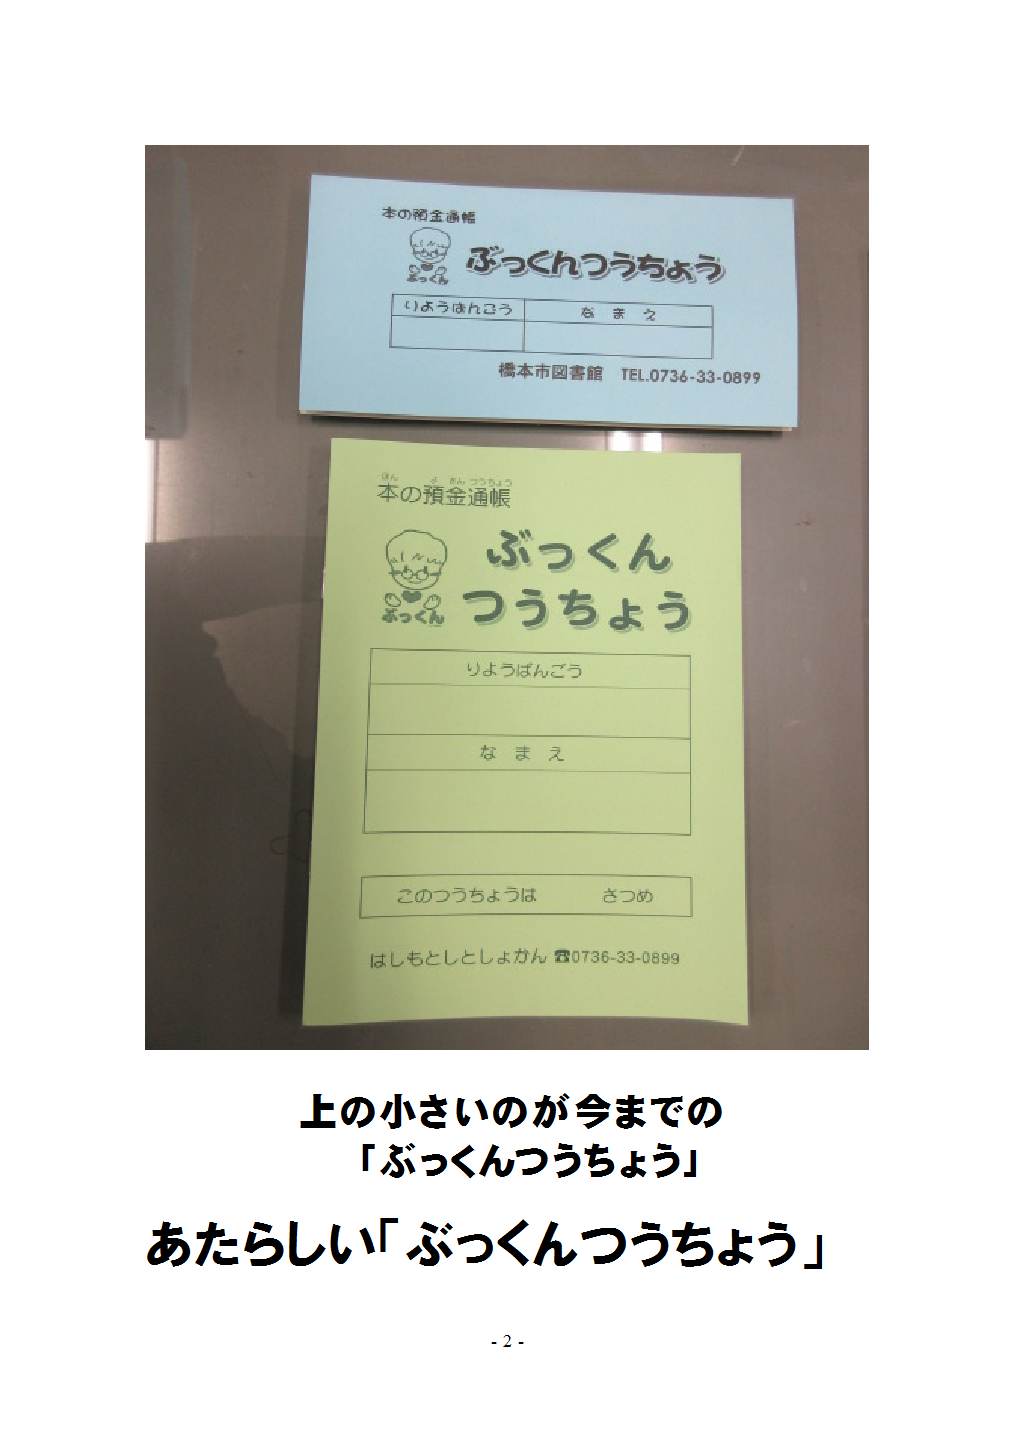 本の預金通帳
ぶっくん
ぶっくんつうちょう
りようばんごう
なまえ
橋本市図書館 TEL.0736-33-0899
ほん よ きん つうちょう
本の預金通帳
ぶっくん
つうちょう
ぶっくん
りようばんごう
なまえ
このつうちょうは さつめ
はしもとしとしょかん ☎0736-33-0899
上の小さいのが今までの
「ぶっくんつうちょう」
あたらしい「ぶっくんつうちょう」
- 2 -